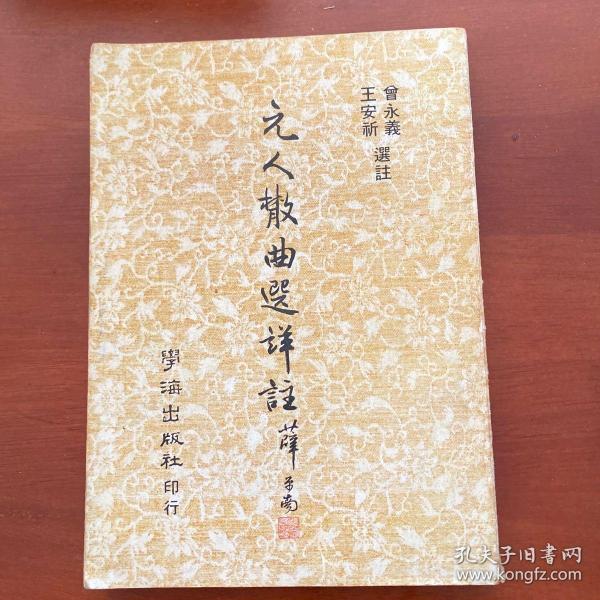 曾永義
王安祈
選註
元人散曲選詳註
薛平南
學海出版社印行
孔夫子旧书网
www.kongfz.com